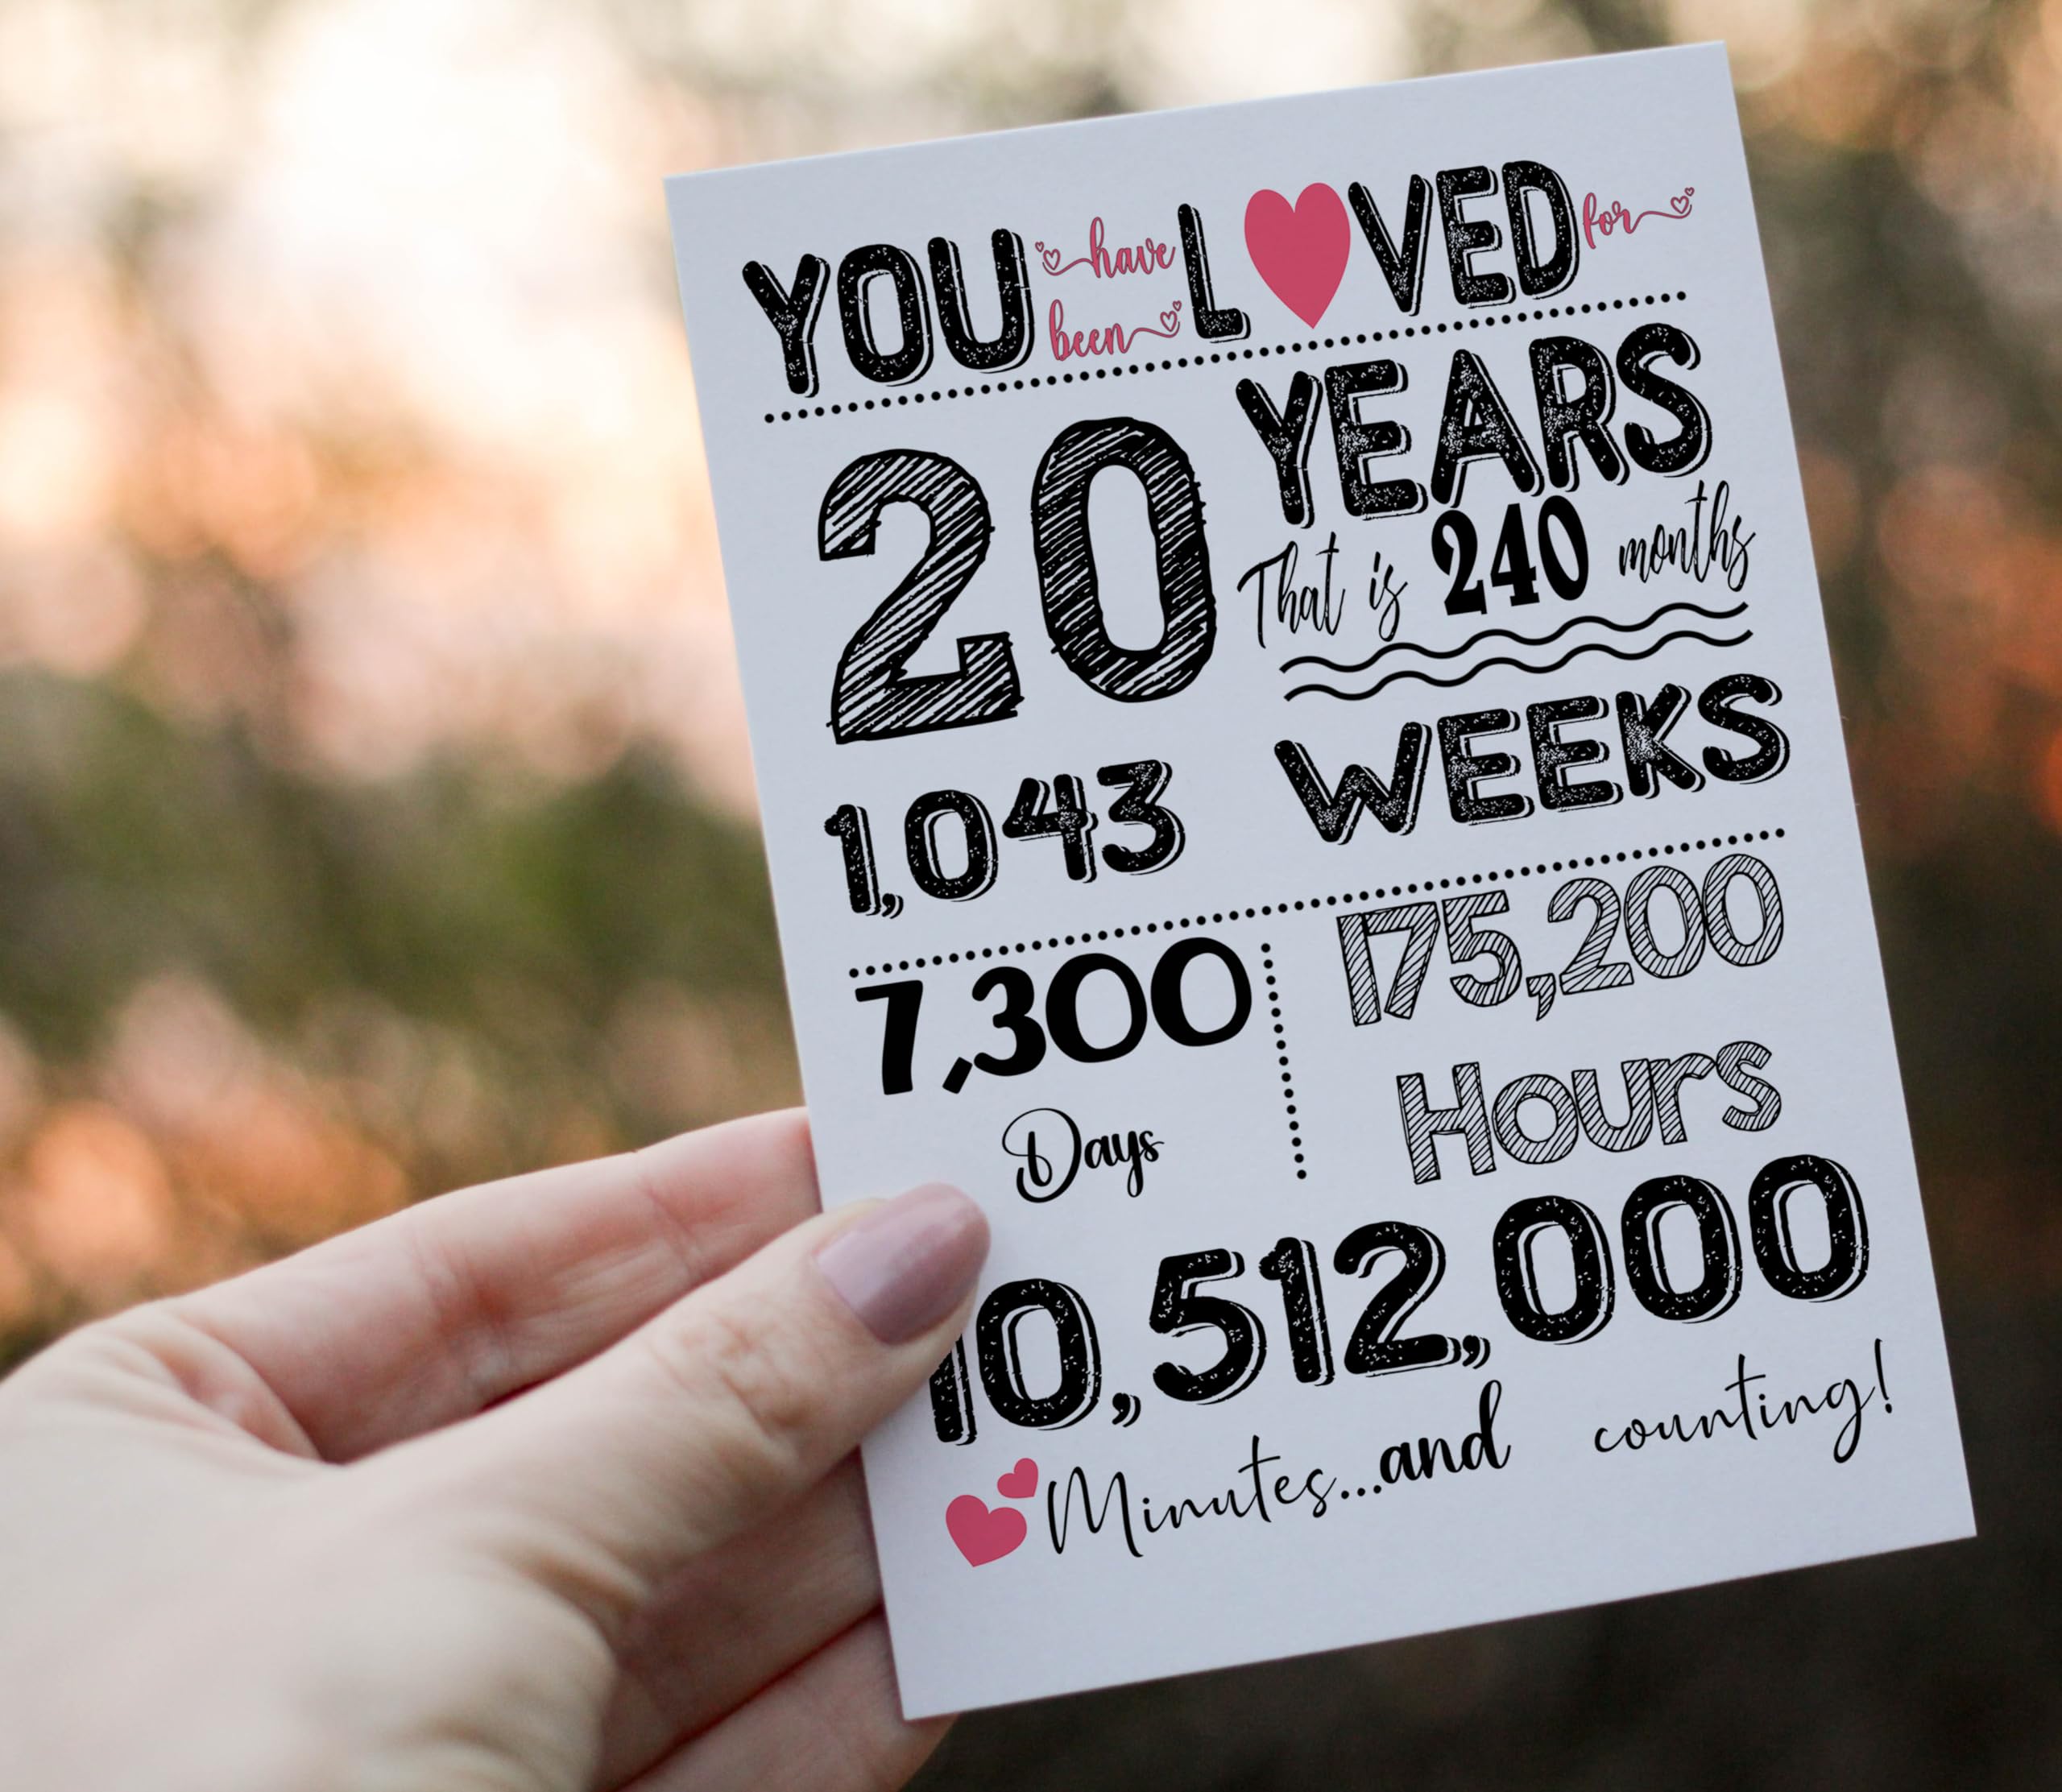 YOU have been L♥VED for
20 YEARS
That is 240 months
1,043 WEEKS
7,300 Days
175,200 Hours
10,512,000
Minutes...and counting!